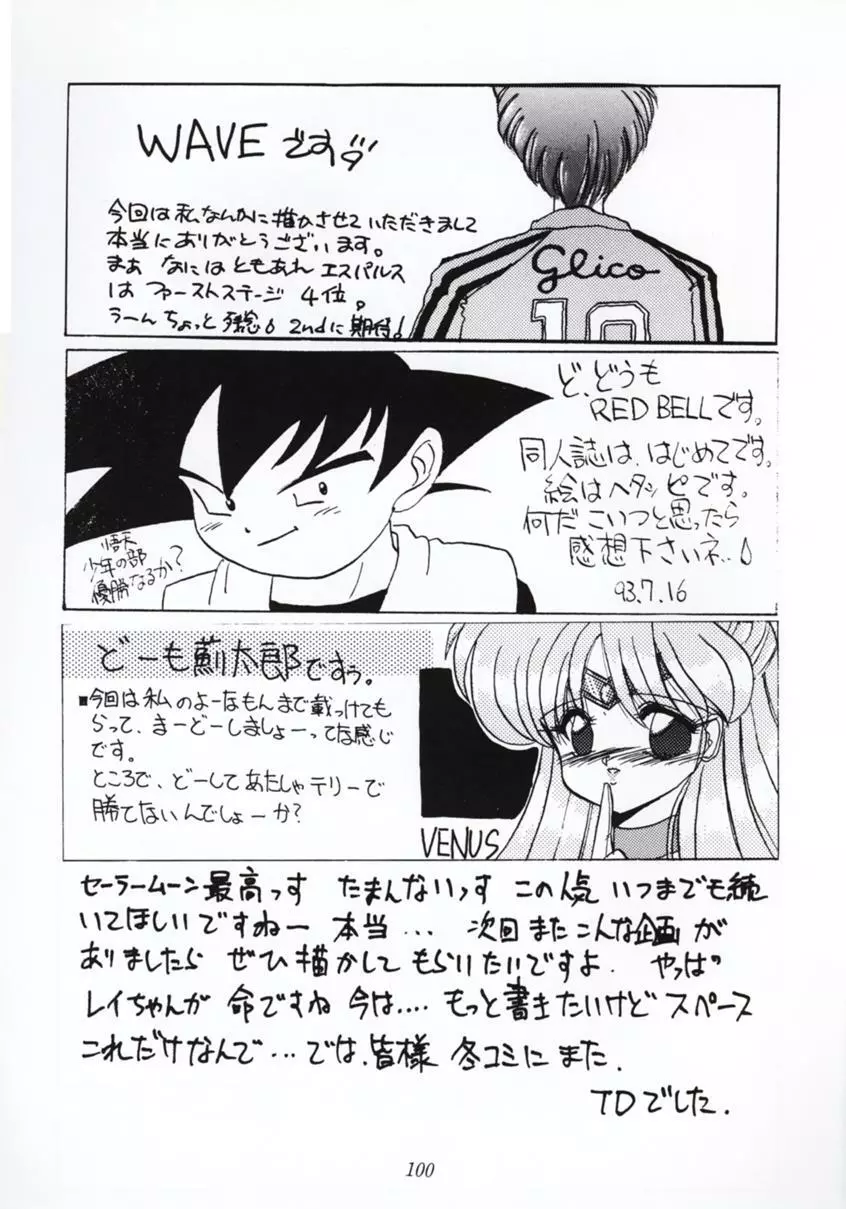 WAVEです
今回は私なんかに描かさせていただきまして
本当にありがとうございます。
まぁ なにはともあれ エスパルス
は ファーストステージ 4位。
うーん ちょっと残念 2ndに期待!
Glico
10
ど、どうも
RED BELLです。
同人誌は、はじめてです。
絵はヘタッピです。
何だこいつと思ったら
感想下さいネ..
93.7.16
悟天
少年の部
優勝なるか?
どーも薊太郎ですぅ。
■今回は私のよーなもんまで載っけても
らって、まーどーしましょーってな感じ
です。
ところで、どーしてあたしゃテリーで
勝てないんでしょーか?
VENUS
セーラームーン最高っす たまんないっす この人気 いつまでも続
いてほしいですねー 本当... 次回またこんな企画が
ありましたら ぜひ描かして もらいたいですよ. やっぱ
レイちゃんが 命ですね 今は.... もっと書きたいけど スペース
これだけなんで...では.皆様 冬コミにまた.
TDでした.
100